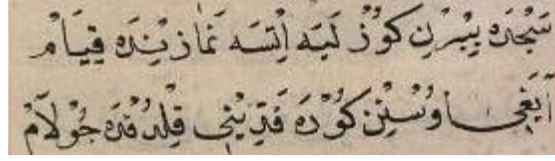 سَجْدَه يِيْرِنِ كُوزْ لَيَه اِتْسَه نَمَازِيْنِدَه قِيَامْ
اَيَغِى اوُسْتِيْن كُورَه قَدِّيْنِى قِلْدُقْدَه جُولآمْ